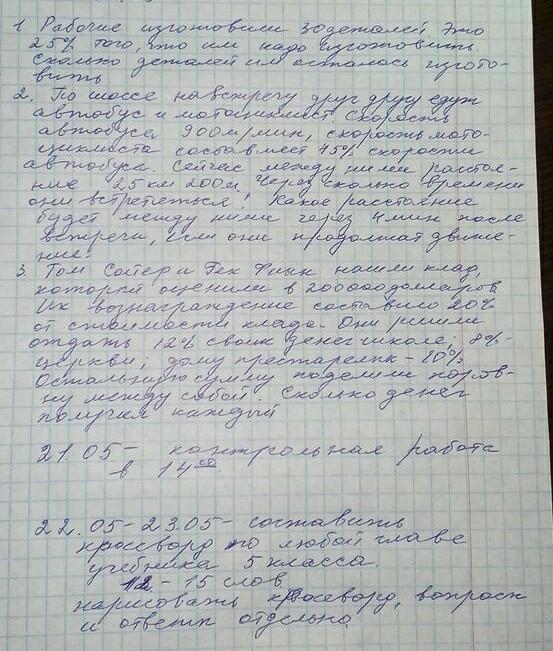 1 Рабочие изготовили 30 деталей. Это
25% того, что им надо изготовить.
Сколько деталей им осталось изгото-
вить
2. По шоссе навстречу друг другу едут
автобус и мотоциклист. Скорость
автобуса 900м/мин, скорость мото-
циклиста составляет 75% скорости
автобуса. Сейчас между ними расстоя-
ние 25 км 200м. Через сколько времени
они встрететься? Какое расстояние
будет между ними через 4 мин после
встречи, если они продолжат движе-
ние.
3. Том Сойер и Гек Финн нашли клад,
который оценили в 200000 долларов
Их вознаграждение составило 20%
от стоимости клада. Они решили
отдать 12% своих денег школе; 8% -
церкви; дому престарелых - 10%
Остальную сумму поделили поров-
ну между собой. Сколько денег
получил каждый
21.05 - контрольная работа
в 14 00
22.05 - 23.05 - составить
кроссворд по любой главе
учебника 5 класса.
12 - 15 слов
нарисовать кроссворд, вопросы
и ответы отдельно.